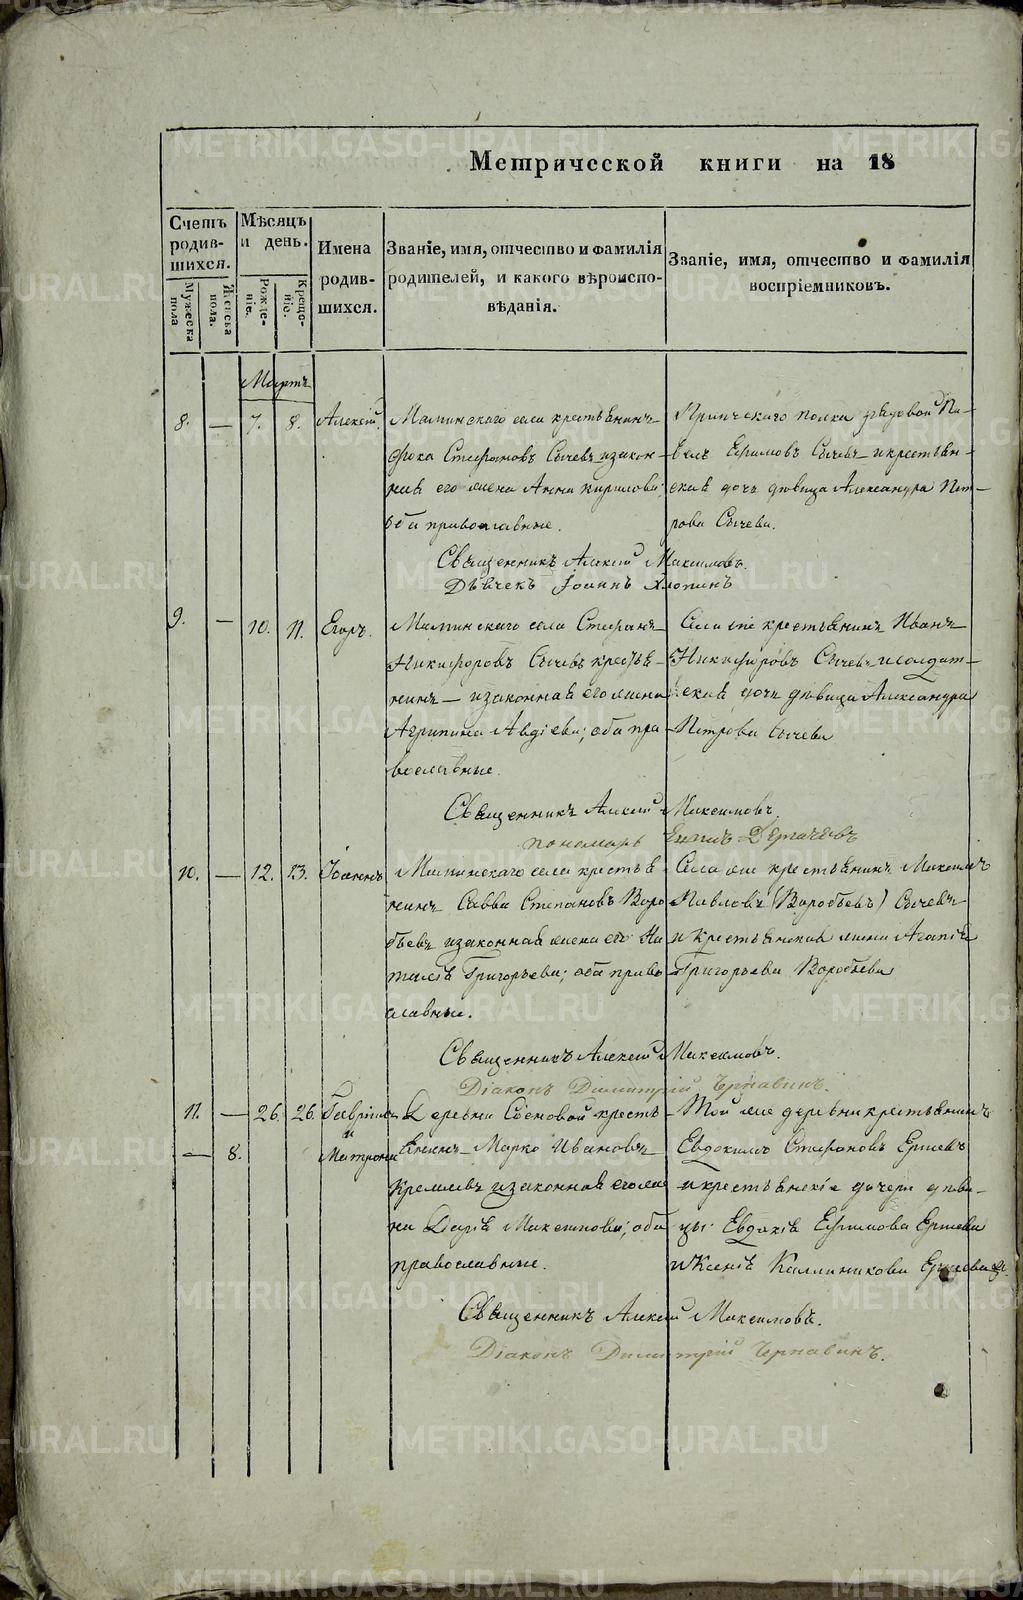 Метрической книги на 18
Счетъ родив-шихся.
Мужеска пола
Женска пола.
Мѣсяцъ и день.
Рожде-ніе.
Креще-ніе.
Имена родив-шихся.
Званіе, имя, отчество и фамилія родителей, и какого вѣроиспо-вѣданія.
Званіе, имя, отчество и фамилія воспріемниковъ.
Мартъ
8. — 7. 8. Алексій.
Маминскаго села крестьянинъ
Фока Стефановъ Сычевъ и закон-
ная его жена Анна Кирилова;
оба православные.
полка рядовой Па-
велъ Ефимовъ Сычевъ и крестьян-
ская дочь дѣвица Александра Пет-
рова Сычева.
Священникъ Алексій Максимовъ.
Дьячекъ Іоаннъ Хлопинъ
9. — 10. 11. Егоръ.
Маминскаго села Стефанъ
Никифоровъ Сычевъ крестья-
нинъ — и законная его жена
Агрипина Авдіева; оба пра
вославные.
Села того же крестьянинъ Иванъ
Никифоровъ Сычевъ и солдат-
ская дочь дѣвица Александра
Петрова Сычева
Священникъ Алексій Максимовъ
пономарь
10. — 12. 13. Іоаннъ
Маминскаго села крестья
нинъ Савва Степановъ Воро
бьевъ и законная жена его На
талія Григорьева; оба право
славные.
Села того же крестьянинъ Михаилъ
Павловъ (Воробьевъ) Сычевъ
и крестьянская жена Агапія
Григорьева Воробьева
Священникъ Алексій Максимовъ.
Діаконъ Димитрій Чернавинъ.
11. — 26. 26. Гавріилъ
и
— 8. Матрона
Деревни крестья
янинъ Марко Ивановъ
и законная его же
на Дарія Максимова; оба
православные.
Той же деревни крестьянинъ
Евдокимъ Стефановъ Ершевъ
и крестьянскіе дочери дѣви-
цы: Евдокія Ефимова Ершева
и Ксенія Каллиникова Ершева
Священникъ Алексій Максимовъ.
Діаконъ Димитрій Чернавинъ.
METRIKI.GASO-URAL.RU